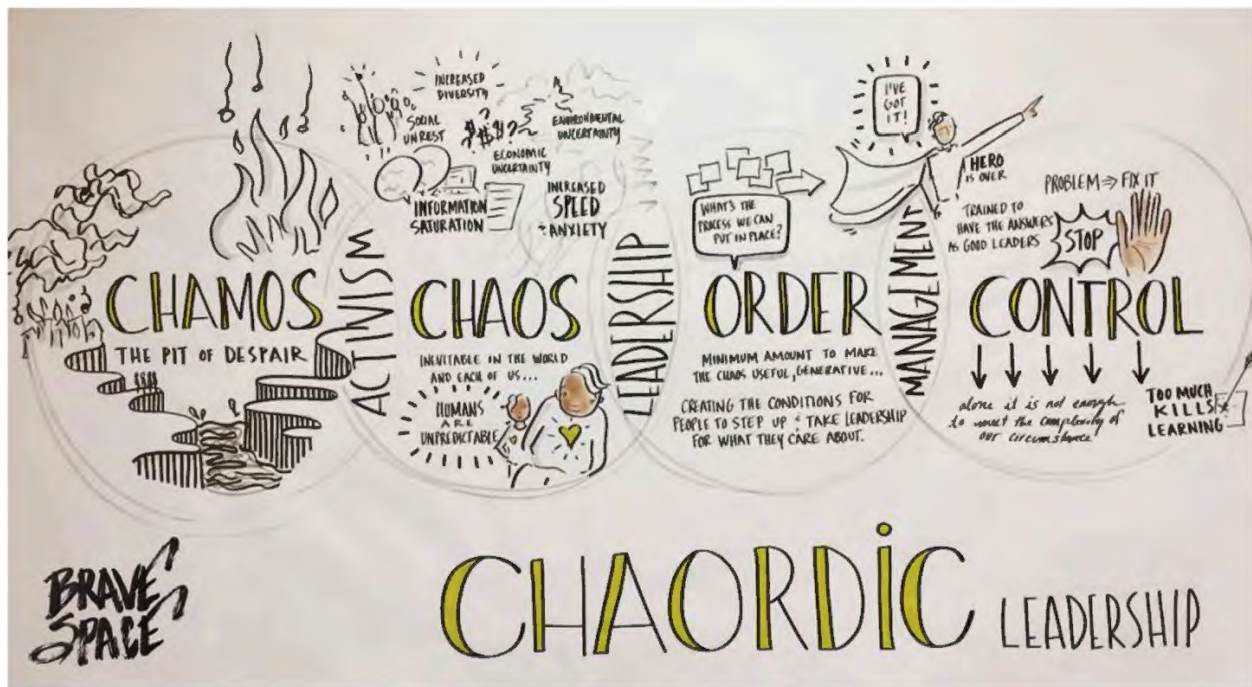 CHAMOS
THE PIT OF DESPAIR
ACTIVISM
INCREASED
DIVERSITY
SOCIAL
UNREST
$#!?
ECONOMIC
UNCERTAINTY
ENVIRONMENTAL
UNCERTAINTY
INFORMATION
SATURATION
INCREASED
SPEED
+ ANXIETY
CHAOS
INEVITABLE IN THE WORLD
AND EACH OF US...
HUMANS
ARE
UNPREDICTABLE
LEADERSHIP
WHAT'S THE
PROCESS WE CAN
PUT IN PLACE?
ORDER
MINIMUM AMOUNT TO MAKE
THE CHAOS USEFUL, GENERATIVE...
CREATING THE CONDITIONS FOR
PEOPLE TO STEP UP + TAKE LEADERSHIP
FOR WHAT THEY CARE ABOUT.
MANAGEMENT
I'VE
GOT
IT!
HERO
IS OVER
TRAINED TO
HAVE THE ANSWERS
AS GOOD LEADERS
PROBLEM ⇒ FIX IT
STOP
CONTROL
alone it is not enough
to meet the complexity of
our circumstance
TOO MUCH
KILLS
LEARNING
BRAVE
SPACE
CHAORDIC LEADERSHIP